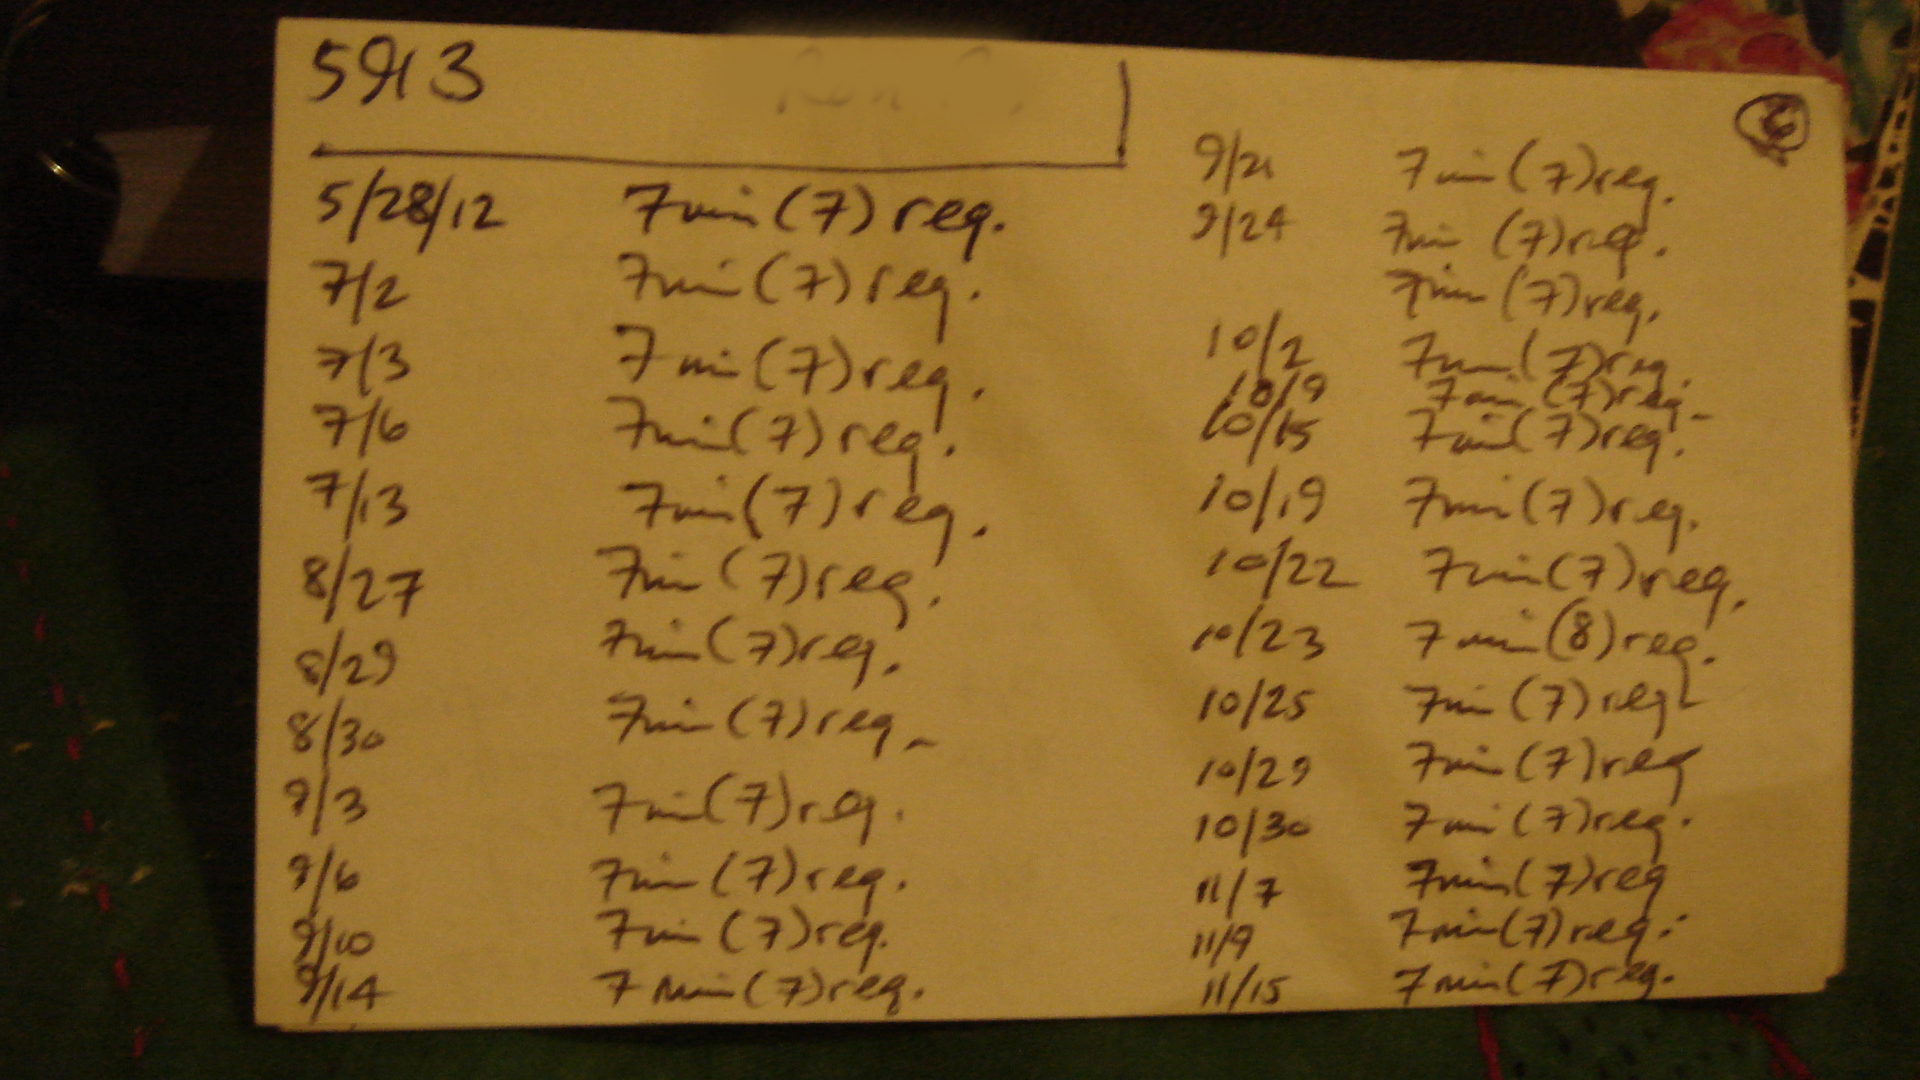 5913
5/28/12 7 min (7) req.
7/2 7 min (7) req.
7/3 7 min (7) req.
7/6 7 min (7) req.
7/13 7 min (7) req.
8/27 7 min (7) req.
8/29 7 min (7) req.
8/30 7 min (7) req.
9/3 7 min (7) req.
9/6 7 min (7) req.
9/10 7 min (7) req.
9/14 7 min (7) req.
6
9/21 7 min (7) req.
9/24 7 min (7) req.
7 min (7) req.
10/2 7 min (7) req.
10/9 7 min (7) req.
10/15 7 min (7) req.
10/19 7 min (7) req.
10/22 7 min (7) req.
10/23 7 min (8) req.
10/25 7 min (7) req
10/29 7 min (7) req
10/30 7 min (7) req.
11/7 7 min (7) req
11/9 7 min (7) req.
11/15 7 min (7) req.